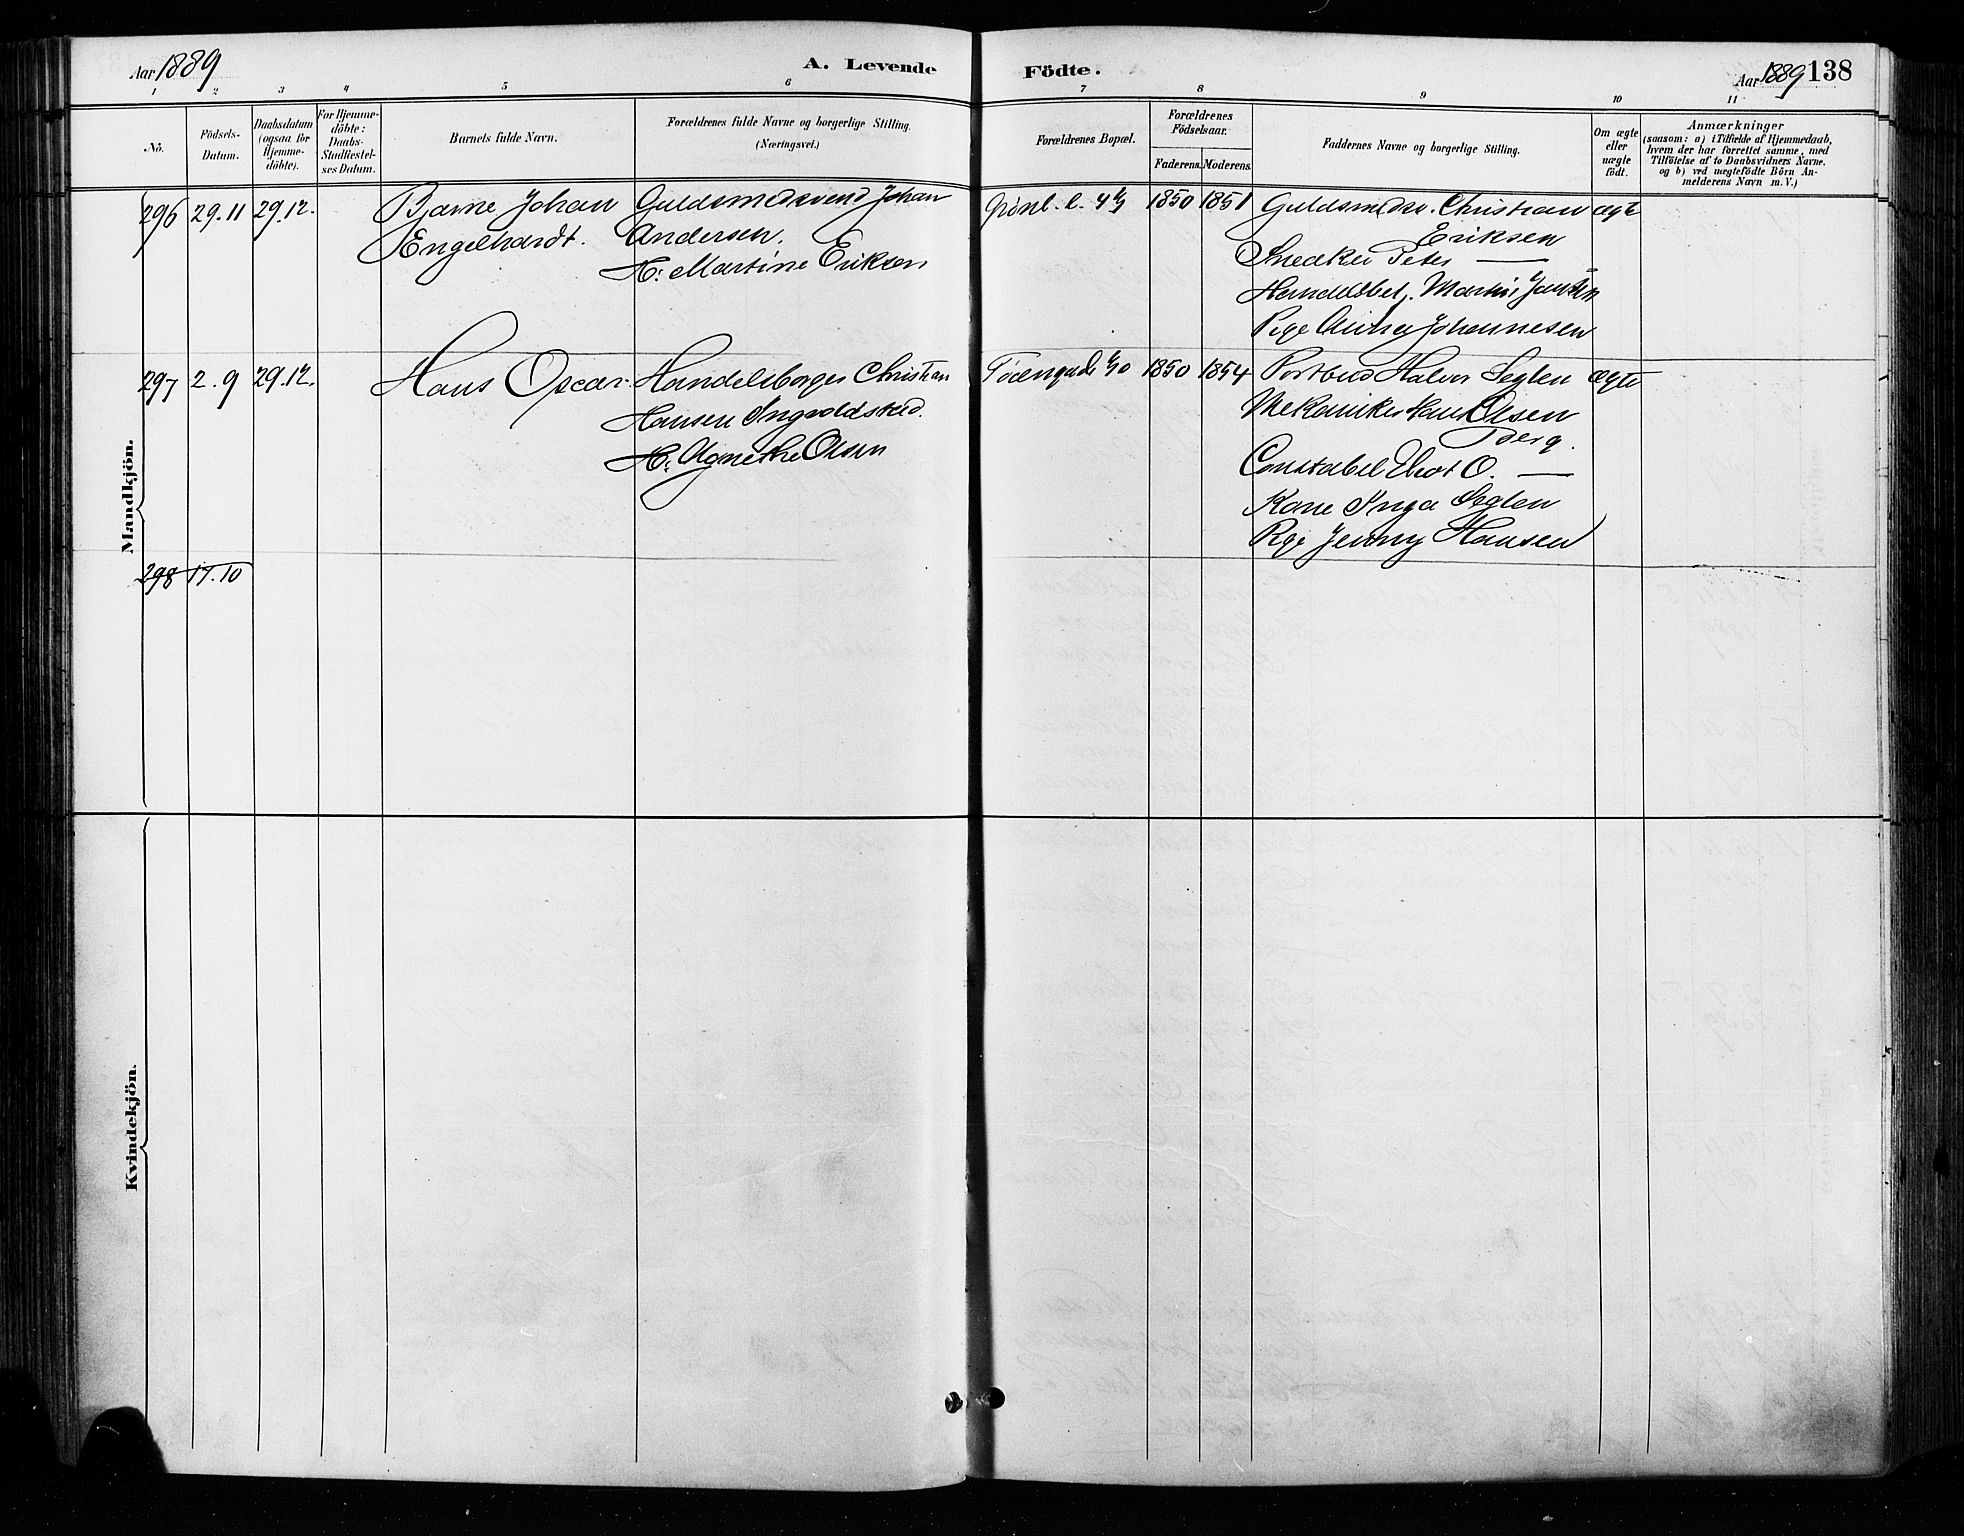 Aar 1889
A. Levende Födte.
Aar 1889 138
1 2 3 4 5 6 7 8 9 10 11
No.
Födsels-Datum.
Daabsdatum (ogsaa for Hjemme-döbte).
For Hjemme-döbte: Daabs-Stadfæstel-ses Datum.
Barnets fulde Navn.
Forældrenes fulde Navne og borgerlige Stilling. (Næringsvei.)
Forældrenes Bopæl.
Forældrenes Födselsaar.
Faderens. Moderens.
Faddernes Navne og borgerlige Stilling.
Om ægte eller uægte födt.
Anmærkninger
(saasom: a) i Tilfælde af Hjemmedaab,
hvem der har forrettet samme, med
Tilföielse af to Daabsvidners Navne,
og b) ved uægtefödte Börn An-
melderens Navn m. V.)
Mandkjön.
296 29.11 29.12. Bjarne Johan Guldsmedsvend Johan Grönl. l. 1850 1851 Guldsmedsv. Christian ægte
Engelhardt. Andersen. Eriksen
H: Martine Eriksen Snedker Peter —
Handelsbet. Martin
Pige Johannesen
297 2.9 29.12. Hans Oscar. Handelsborger Christian 1850 1854 Postbud Halvor Seglen ægte
Hansen Ingvoldstad. Mekaniker Olsen
H: Agnethe Olsen Berg.
Constabel O. —
Kone Inga Seglen
Pige Jenny Hansen
298 17.10
Kvindekjön.